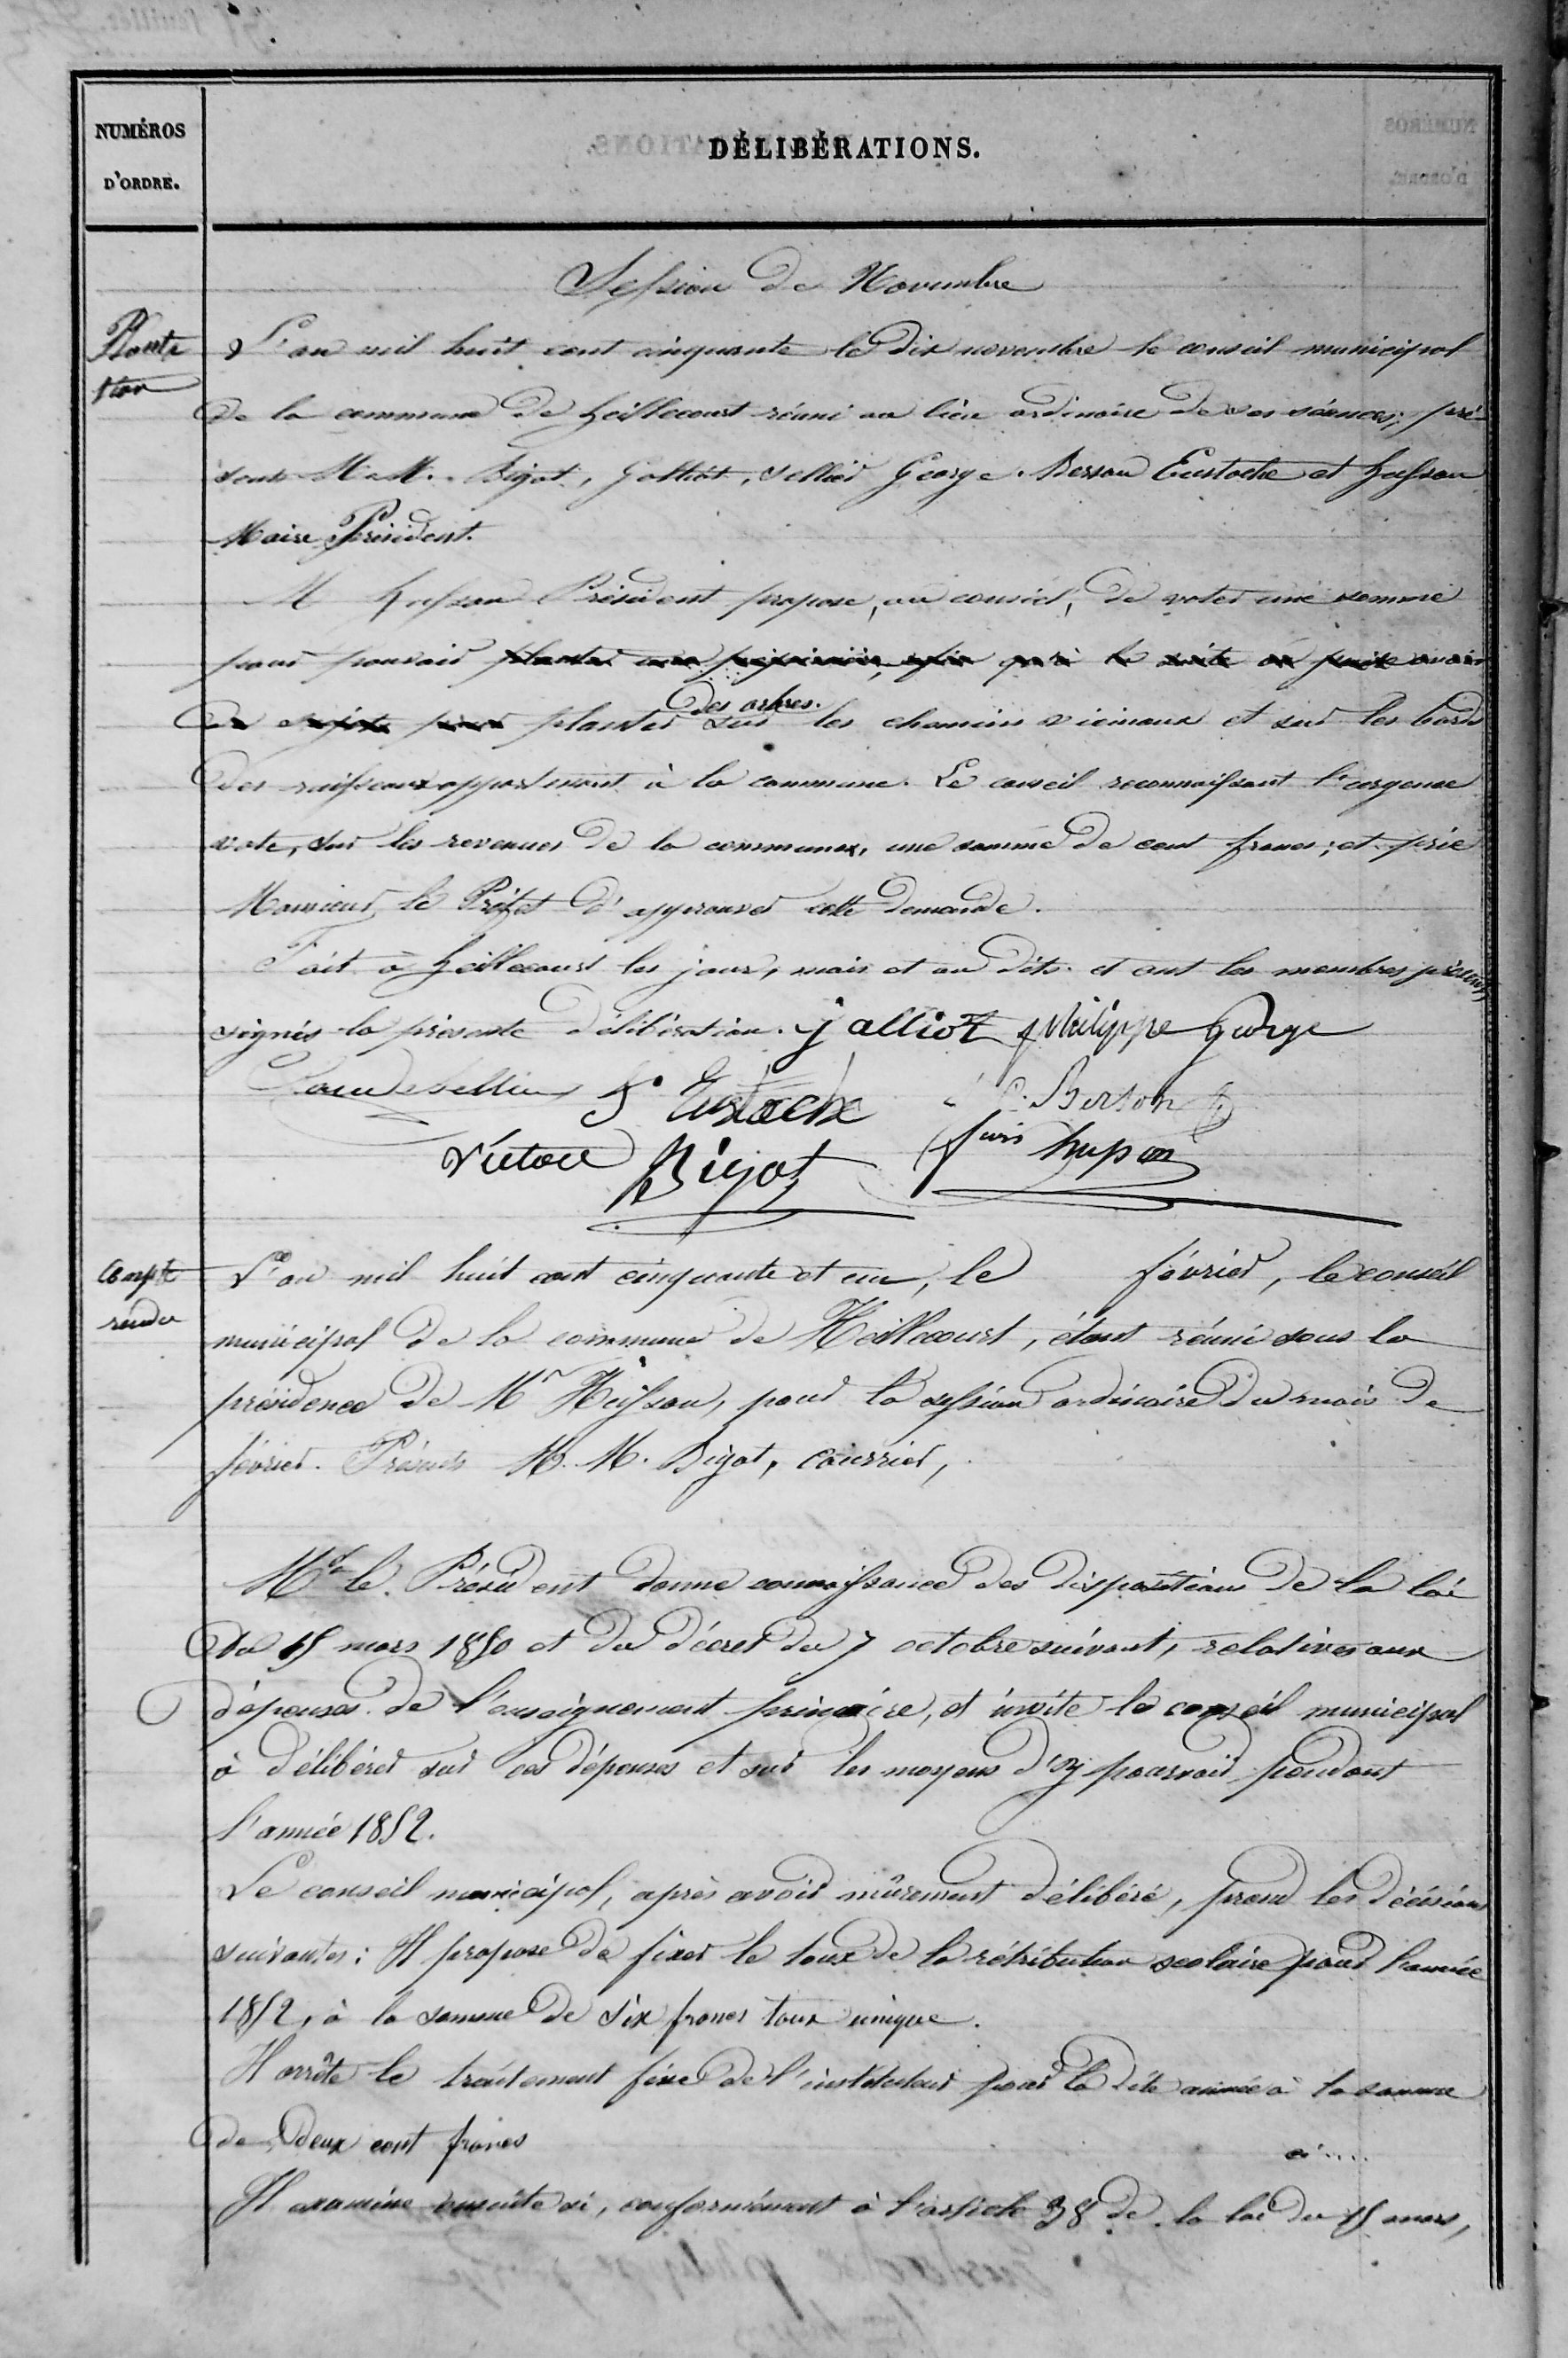 NUMÉROS
D'ORDRE.
DÉLIBÉRATIONS.
Session de Novembre
Planta
tion
L'an mil huit cent cinquante le dix novembre le conseil municipal
de la commune de heillecourt réuni au lieu ordinaire de ses séances; pré-
sents M.M. Bigot, Galliot, Sellier George. Berson Eustache et husson
Maire Président.
M husson Président propose, au conseil, de voter une somme
pour pouvoir planter une pépinière, afin qu'à la suite on puisse avoir
de sujets pour planter des arbres. sur les chemins vicinaux et sur les bords
des ruisseaux appartenant à la commune. Le conseil reconnaissant l'urgence
vote, sur les revenues de la commune, une somme de cent francs; et prie
Monsieur le Préfet d'approuver cette demande.
Fait à heillecourt les jour, mois et an dits. et ont les membres présents,
signés la présente délibération. j alliot philippe George
Sellier Eustache C. Berson
Victore Bigot husson
Compte
rendu
L'an mil huit cent cinquante et un, le février, le conseil
municipal de la commune de Heillecourt, étant réuni sous la
présidence de Mr Husson, pour la session ordinaire du mois de
février. Présents M. M. Bigot, Courrier,
Mr le Président donne connaissance des dispositions de la loi
du 15 mars 1850 et du décret du 7 octobre suivant, relatives aux
dépenses de l'enseignement primaire, et invite le conseil municipal
à délibérer sur ces dépenses et sur les moyens d'y pourvoir pendant
l'année 1852.
Le conseil municipal, après avoir mûrement délibéré, prend les décisions
suivantes: Il propose de fixer le taux de la rétribution scolaire pour l'année
1852, à la somme de six francs taux unique.
Il arrête le traitement fixe de l'instituteur pour la dite année à la somme
de deux cent francs ci....
Il examine ensuite si, conformément à l'article 38 de la loi du 15 mars,